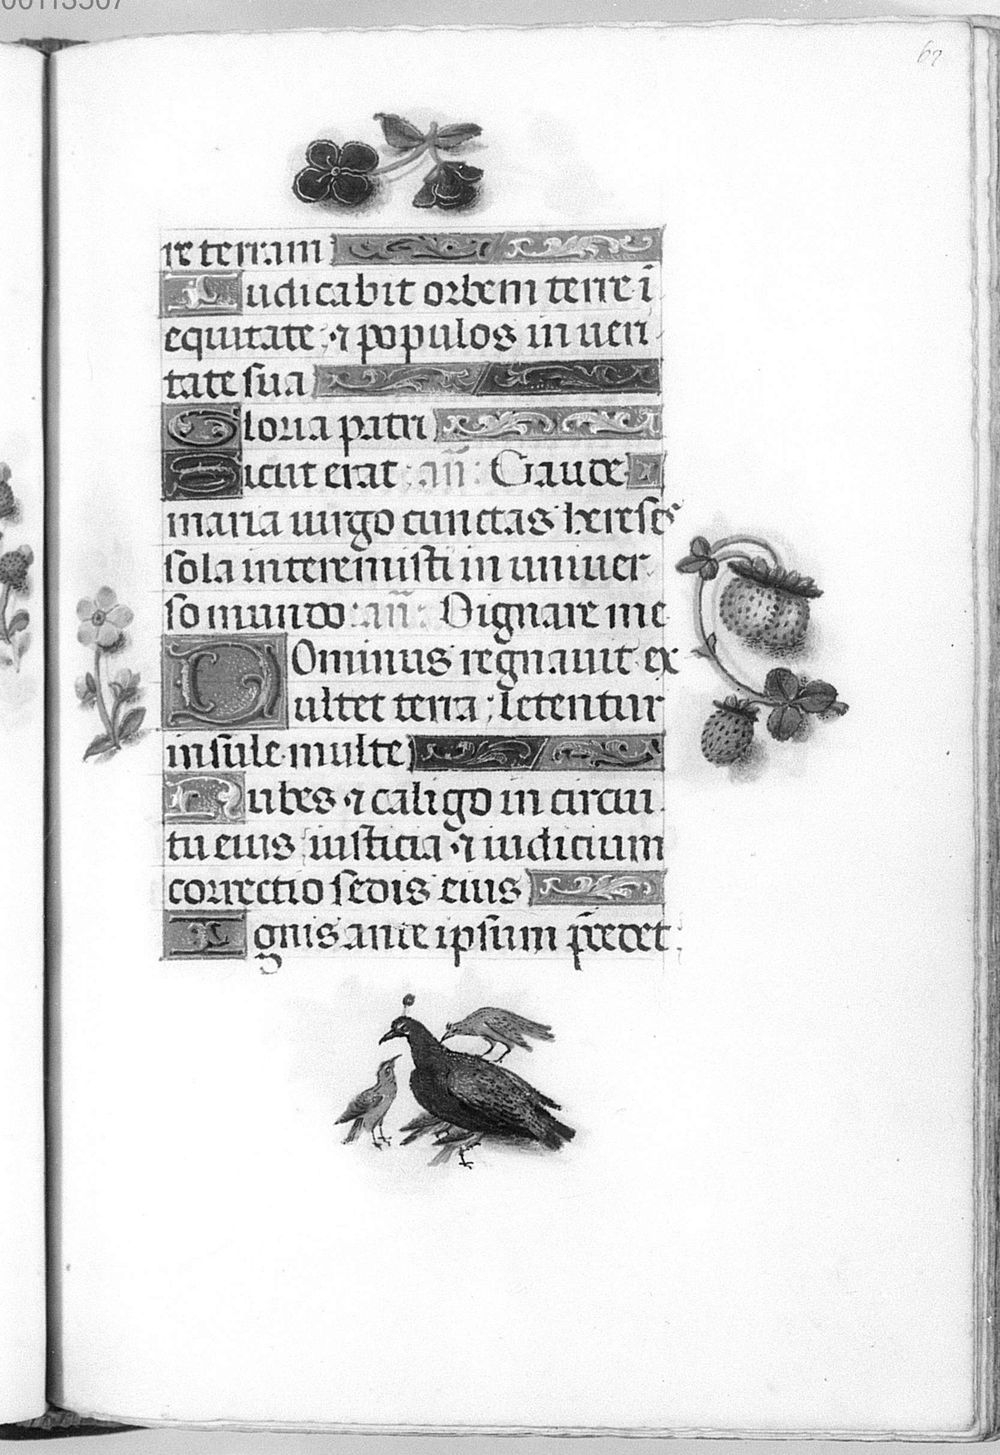 00113507
67
re terram
Iudicabit orbem terre ī
equitate ; ⁊ populos in ueri
tate sua
Gloria patri
Sicut erat : añ : Gaude
maria uirgo cunctas hereses
sola interemisti in uniuer
so mundo : añ : Dignare me
Dominus regnauit ex
ultet terra ; letentur
insule multe
Nubes ⁊ caligo in circui
tu eius iusticia ⁊ iudicium
correctio sedis eius
Ignis ante ipsum p̄cedet :